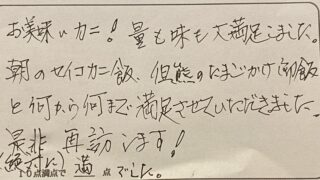 お美味いカニ！量も味も大満足しました。
朝のセイコカニ飯、但熊のたまごかけ御飯
と何から何まで満足させていただきました
是非 再訪します！
(絶対に)
10点満点で 満 点 でした。